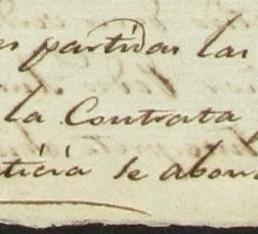 partidas las
la Contrata
se abon